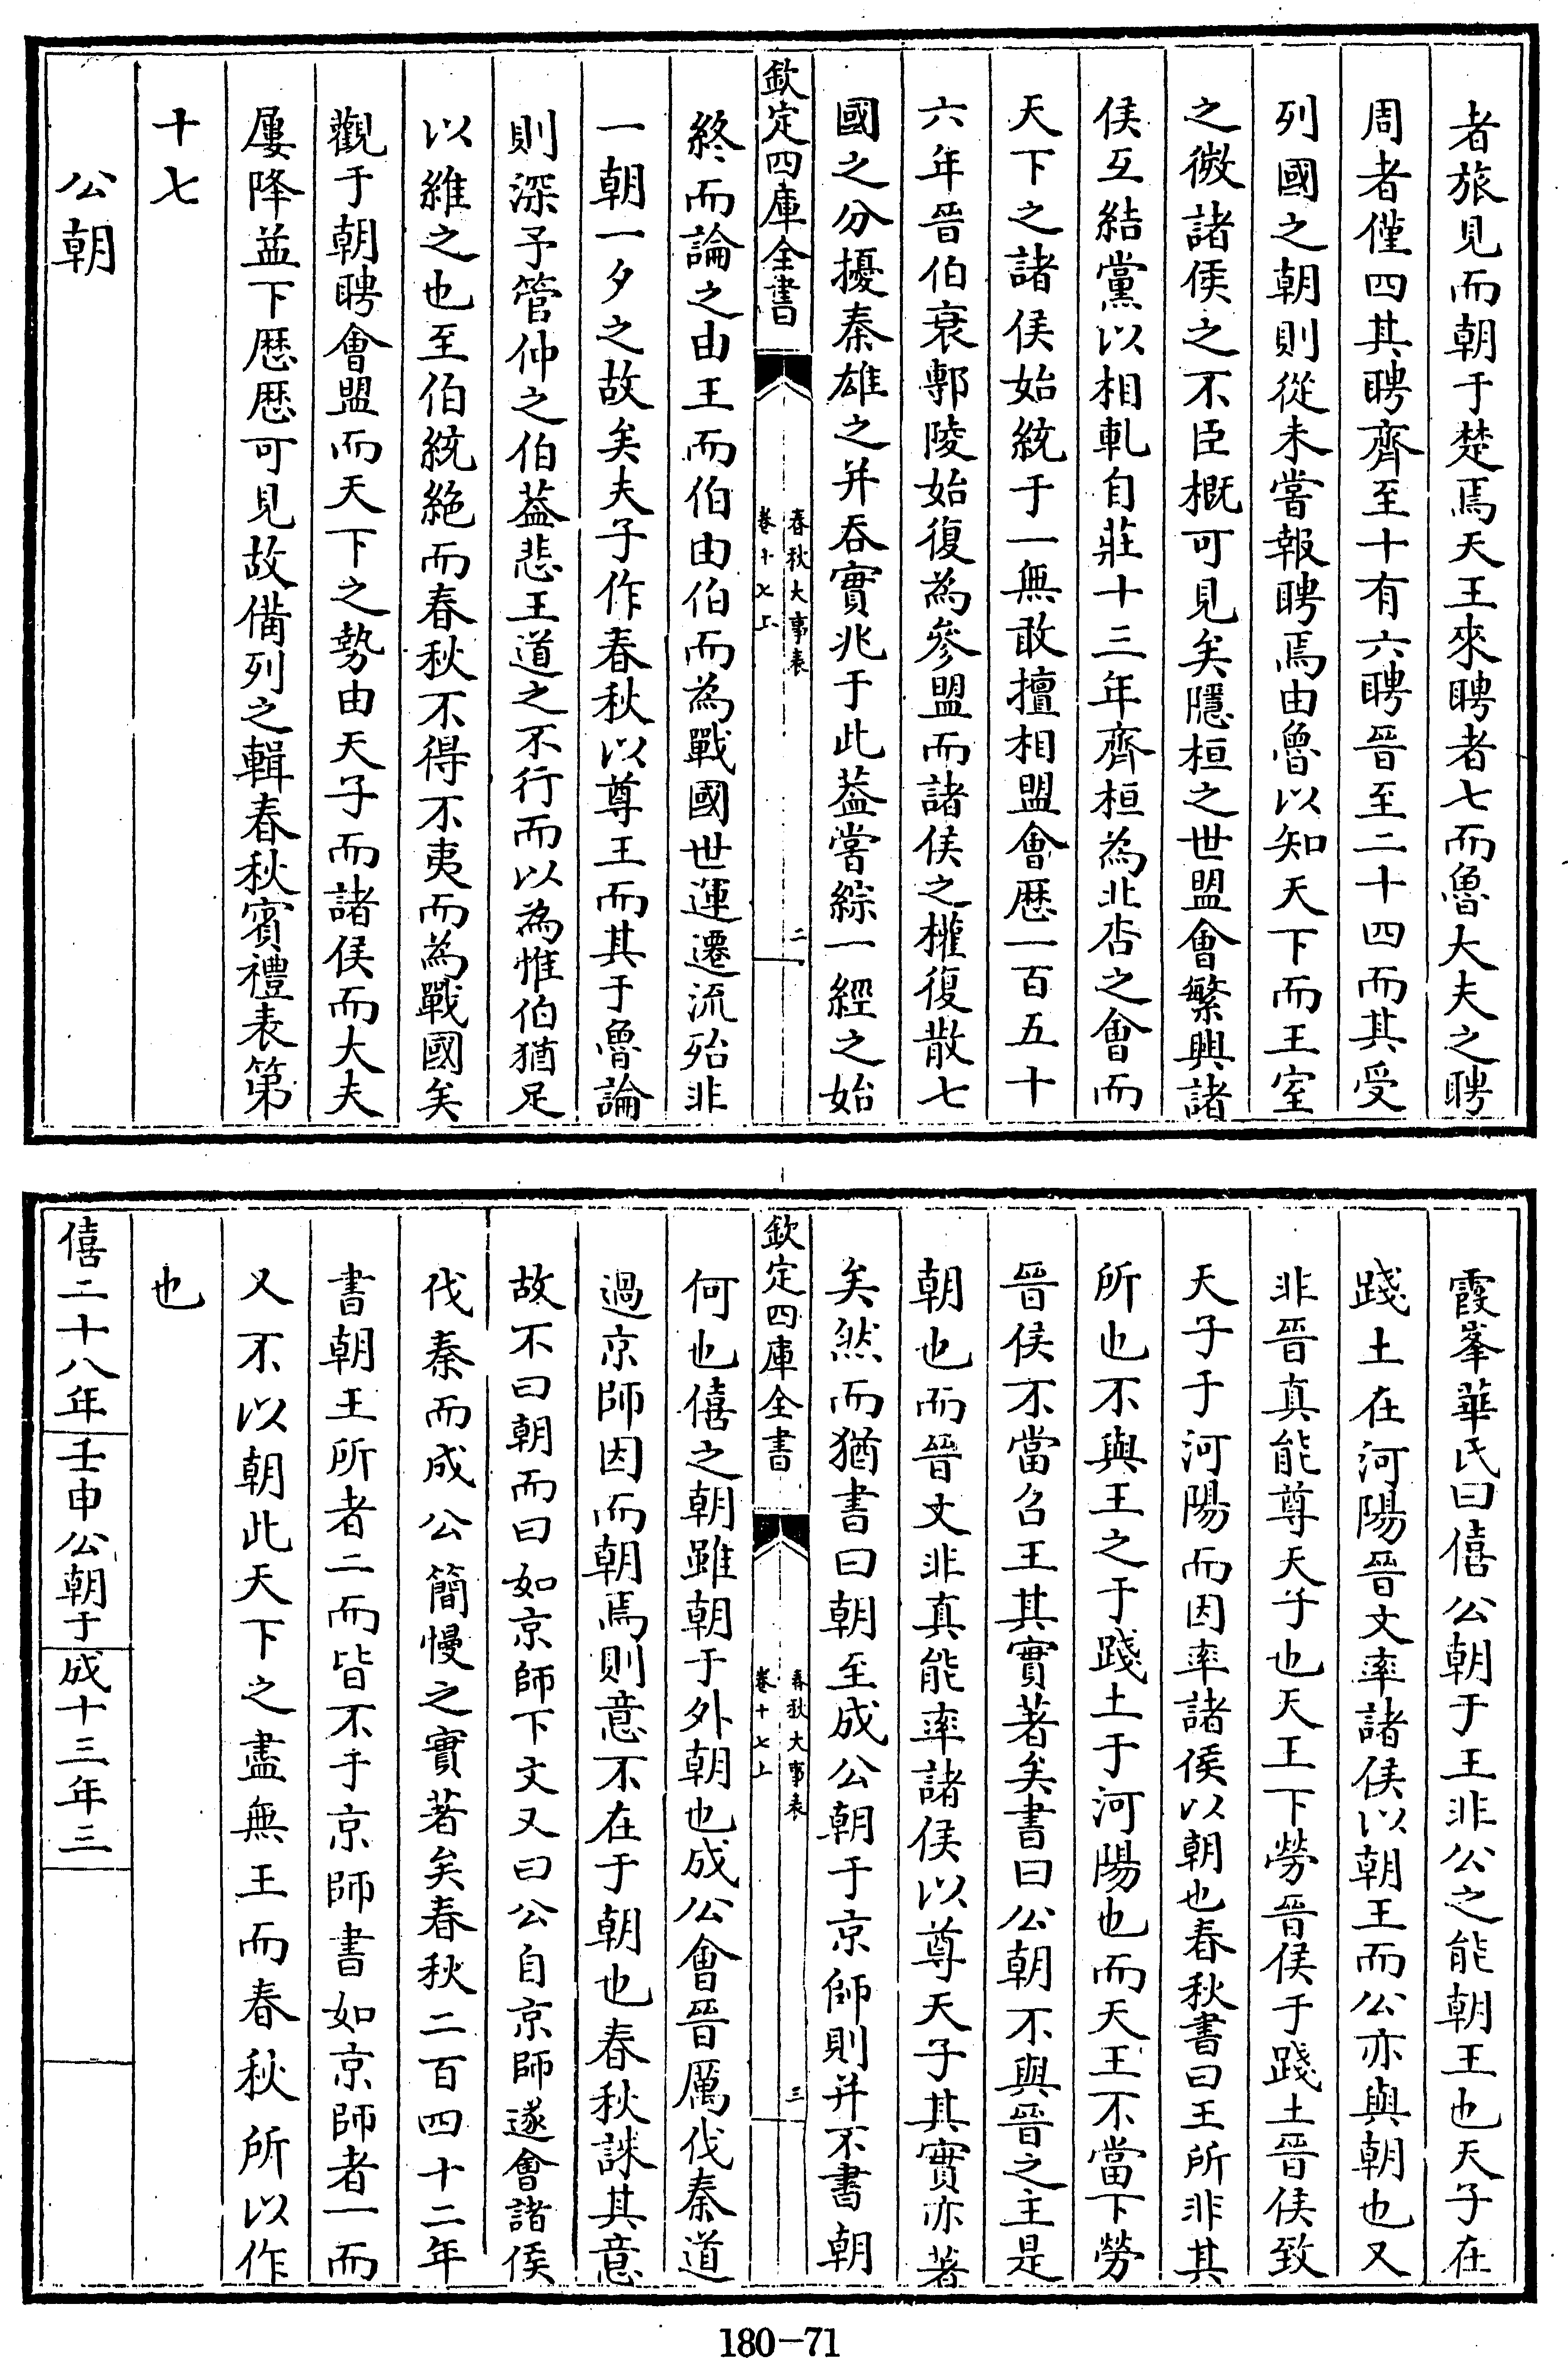 者旅見而朝于楚焉天王來聘者七而魯大夫之聘
周者僅四其聘齊至十有六聘晉至二十四而其受
列國之朝則從未嘗報聘焉由魯以知天下而王室
之微諸侯之不臣概可見矣隱桓之世盟會繁興諸
侯互結黨以相軋自莊十三年齊桓為北杏之會而
天下之諸侯始統于一無敢擅相盟會歷一百五十
六年晉伯衰鄟陵始復為參盟而諸侯之權復散七
國之分擾秦雄之并吞實兆于此葢嘗綜一經之始
欽定四庫全書
春秋大事表
卷十七上
二
終而論之由王而伯由伯而為戰國世運遷流殆非
一朝一夕之故矣夫子作春秋以尊王而其于魯論
則深予管仲之伯葢悲王道之不行而以為惟伯猶足
以維之也至伯統絕而春秋不得不夷而為戰國矣
觀于朝聘會盟而天下之勢由天子而諸侯而大夫
屢降益下歷歷可見故備列之輯春秋賓禮表第
十七
公朝
霞峯華氏曰僖公朝于王非公之能朝王也天子在
踐土在河陽晉文率諸侯以朝王而公亦與朝也又
非晉真能尊天子也天王下勞晉侯于踐土晉侯致
天子于河陽而因率諸侯以朝也春秋書曰王所非其
所也不與王之于踐土于河陽也而天王不當下勞
晉侯不當召王其實著矣書曰公朝不與晉之主是
朝也而晉文非真能率諸侯以尊天子其實亦著
矣然而猶書曰朝至成公朝于京師則并不書朝
欽定四庫全書
春秋大事表
卷十七上
三
何也僖之朝雖朝于外朝也成公會晉厲伐秦道
過京師因而朝焉則意不在于朝也春秋誅其意
故不曰朝而曰如京師下文又曰公自京師遂會諸侯
伐秦而成公簡慢之實著矣春秋二百四十二年
書朝王所者二而皆不于京師書如京師者一而
又不以朝此天下之盡無王而春秋所以作
也
僖二十八年
壬申公朝于
成十三年三
180-71